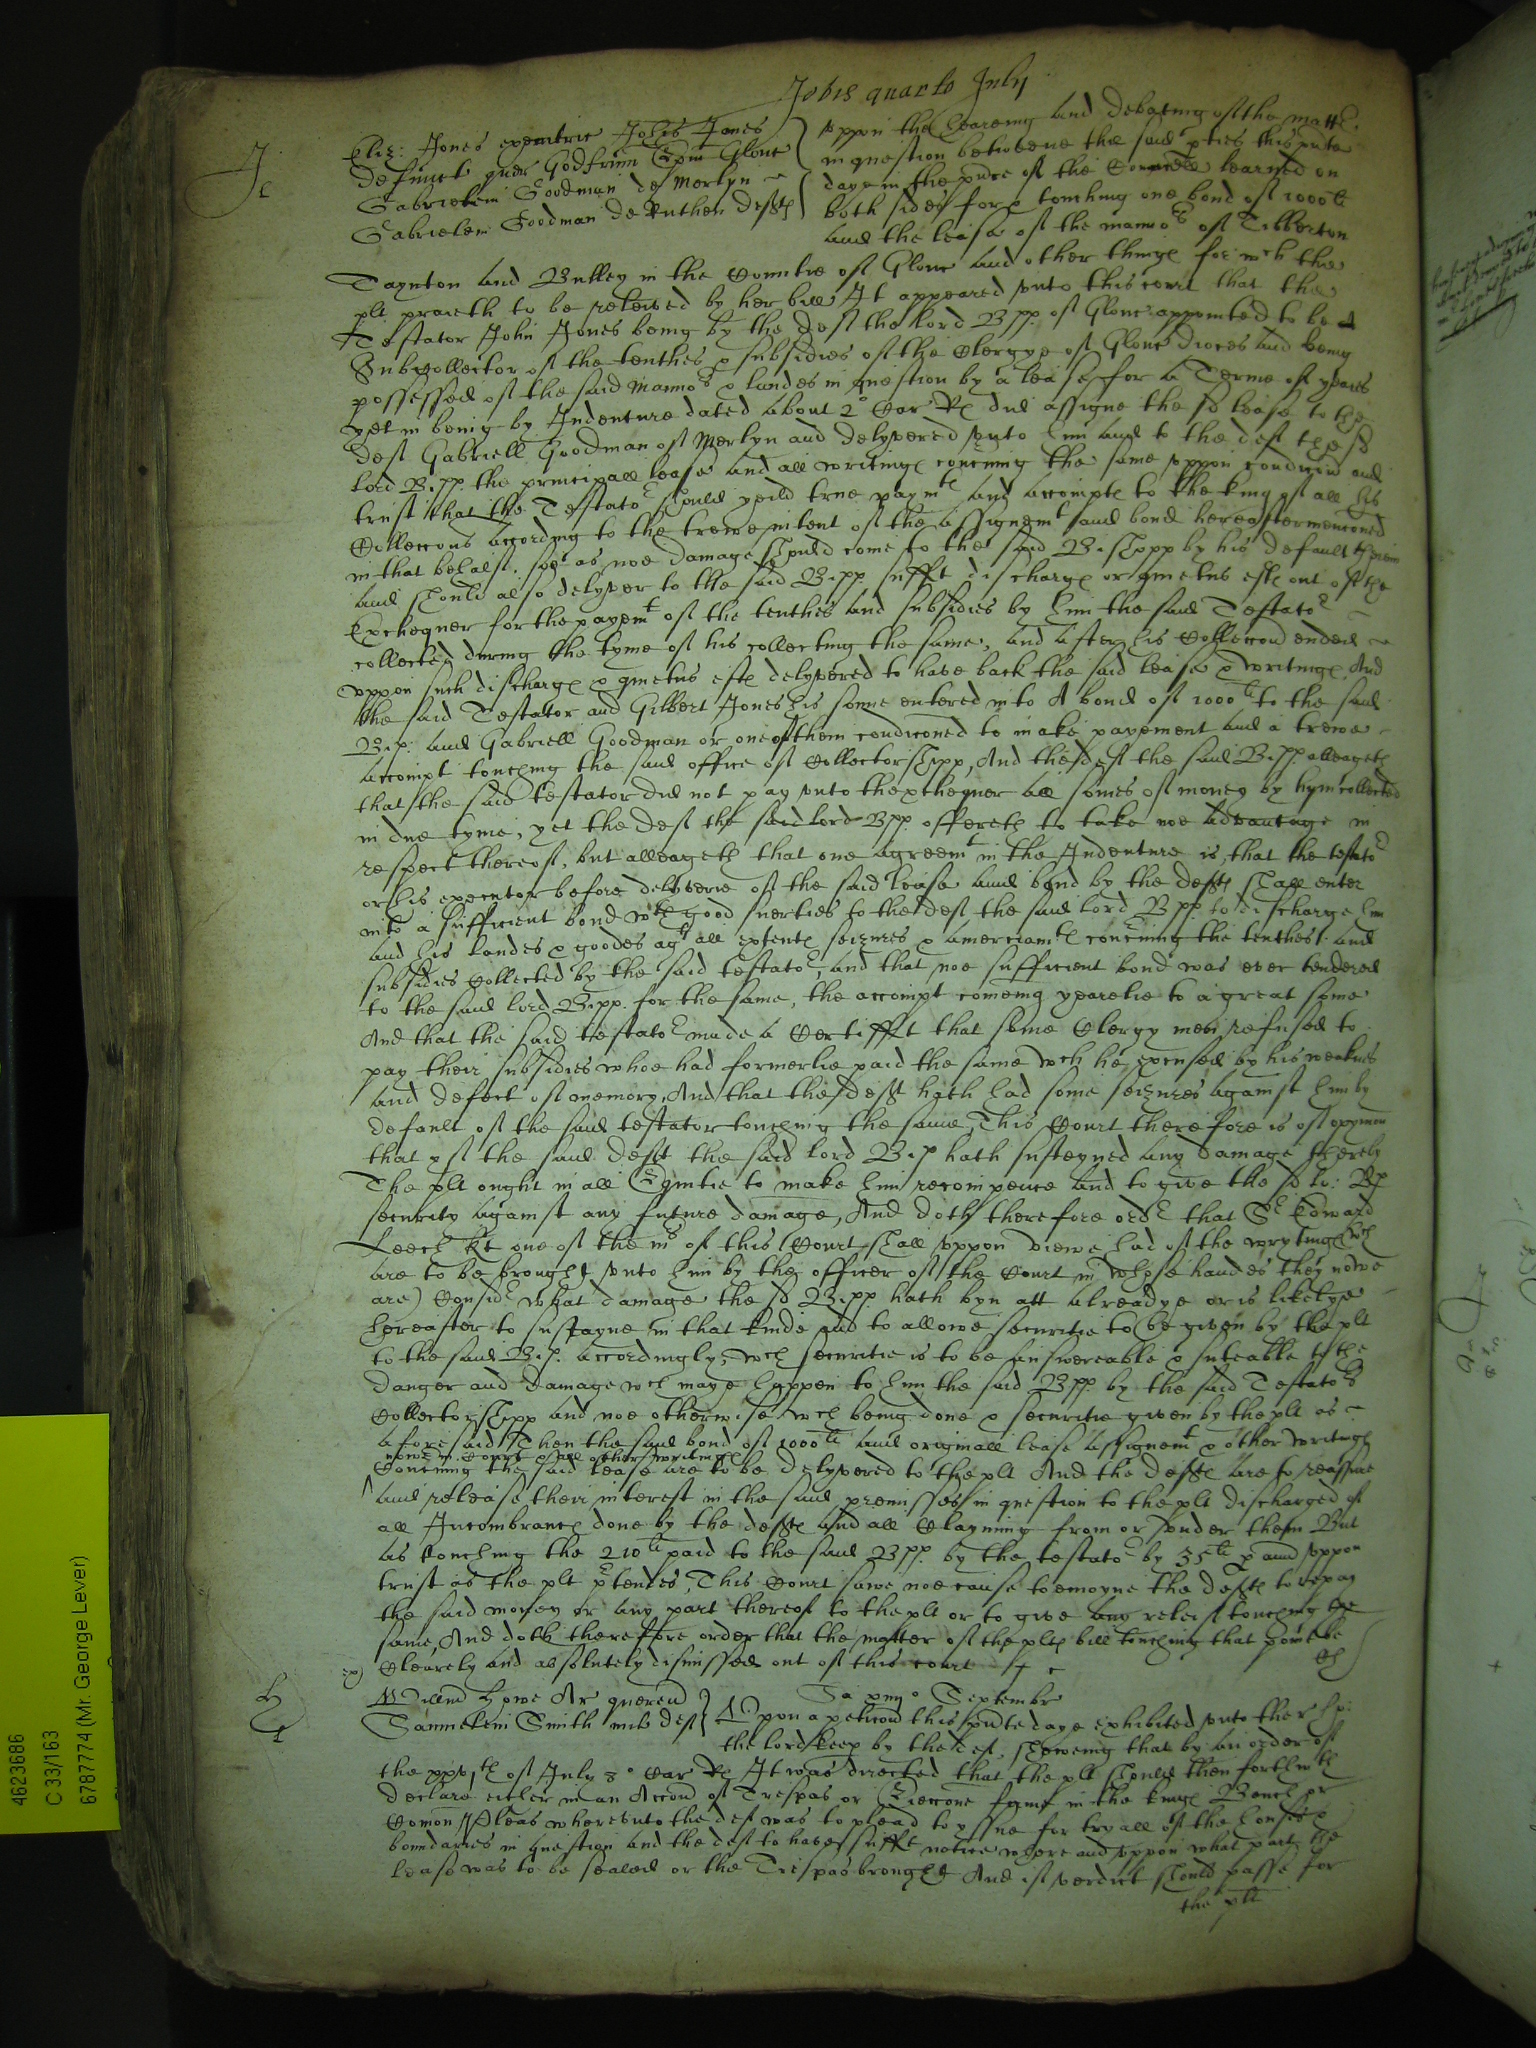 Jovis quarto July
Je
Eliz: Jones executrix Johis Jones
defunct quer Godfrium Epm Glouc
Gabrielem Goodman de Merlyn
Gabrielem Goodman de Ruthen defftes
Uppon the heareing and debateing of the matter
in question betweene the said pties this pnte
daye in the pnce of the Councell learned on
both sides for & touching one bond of 1000li
and the lease of the mannor of Tibberton
Taynton and Bulley in the Countie of Glouc and other things for wch the
plt praieth to be releived by her bill It appeared unto this court that the
Testator John Jones being by the deft the lord Bpp. of Glouc appointed to be a
Subcollector of the tenthes & subsidies of the Clergye of Glouc dioces and being
possessed of the said Mannor & landes in question by a lease for a Terme of yeares
yet in being by Indenture dated about 2o Car Rs did assigne the sd lease to the
deft Gabriell Goodman of Merlyn and delyvered unto him and to the deft the sd
lord B.pp. the principall lease and all writings concning the same uppon condicon and
trust that the Testator should yeild true paymts and accompts to the king of all his
Colleccons according to the trewe intent of the assignemt and bond hereafter menconed
in that behalf. soe as noe damage should come to the said Bishopp by his default therein
and should also delyver to the said B.pp. sufft discharge or quietus este out of the
Exchequer for the payemt of the tenthes and subsidies by him the said Testator
collected during the tyme of his collecting the same, and after his Colleccons ended
uppon such discharge & quietus este delyvered to have back the said lease & writings And
the said Testator and Gilbert Jones his sonne entered into A bond of 1000li to the said
B.p: and Gabriell Goodman or one of them condiconed to make payement and a trewe
accompt touching the said office of Collectorshipp, And the deft the said B.pp. alleageth
that the said testator did not pay unto thexchequer all somes of money by hym collected
in due tyme, yet the deft the said lord Bpp. offereth to take noe advantage in
respect thereof, but alleageth that one agreemt in the Indenture is, that the testator
or his executor before delyverie of the said lease and bond by the defts shall enter
into a sufficient bond wth good suerties to the deft the said lord Bpp. to discharge him
and his landes & goodes agt all extents seizures & amerciamts concning the tenthes and
subsidies Collected by the said testator, and that noe sufficient bond was ever tendered
to the said lord B.pp. for the same, the accompt comeing yearelie to a great some
And that the said testator made a Certifft that some Clergy men refused to
pay their subsidies whoe had formerlie paid the same wch he excused by his weaknes
and defect of memory, And that the deft hath had some seizures against him by
default of the said testator touching the same, This Court therefore is of opynion
that yf the said deft the said lord B.p hath susteyned any damage thereby
The plt ought in all Equitie to make him recompence and to give the sd lo: Bp
security against any future damage, And doth therefore ordr that Sr Edward
Leech kt one of the mrs of this Court shall uppon viewe had of the wrytings wch
are to be brought unto him by the officer of the Court in whose handes they nowe
are) Considr what damage the sd B.pp. hath byn att alreadye or is likelye
hereafter to sustayne in that kinde and to allowe securitie to be given by the plt
to the said B.p. accordingly, wch securitie is to be answereable & suteable to the
danger and damage wch maye happen to him the said Bpp. by the said Testators
Collectorshipp and noe otherwise wch being done & securitie given by the plt as
aforesaid Then the said bond of 1000li and originall lease assignemt & other writings
nowe in Court & all other writings
concning the said lease are to be delyvered to the plt And the defts are to reassure
and release their interest in the said premisses in question to the plt discharged of
all Incombrances done by the defts and all Clayming from or under them But
as touching the 210li paid to the said Bpp. by the testator by 35li p ann uppon
trust as the plt ptendes, This Court sawe noe cause to enioyne the defts to repay
the said money or any part thereof to the plt or to give any releif touching the
same, And doth therefore order that the matter of the plts bill touching that pointe be
Clearely and absolutely dismissed out of this court
ex)
H
Willm Howe Ar quer
Samuelem Smith mil deft
Sa xiijo Septembr
Upon a peticon this pnte daye exhibited unto the
the lord keep by the deft, shewing that by an order of
the xxvth of July 3o Car Rs It was directed that the plt should then forthwth
declare either in an Accon of Trespas or Eieccone firme in the kings Bench or
Comon Pleas whereunto the deft was to plead to yssue for tryall of the
boundaries in question and the deft to have sufft notice where and uppon what part the
lease was to be sealed or the Trespas brought And if verdict should passe for
the plt
4623686
C 33/163
6787774 (Mr. George Lever)